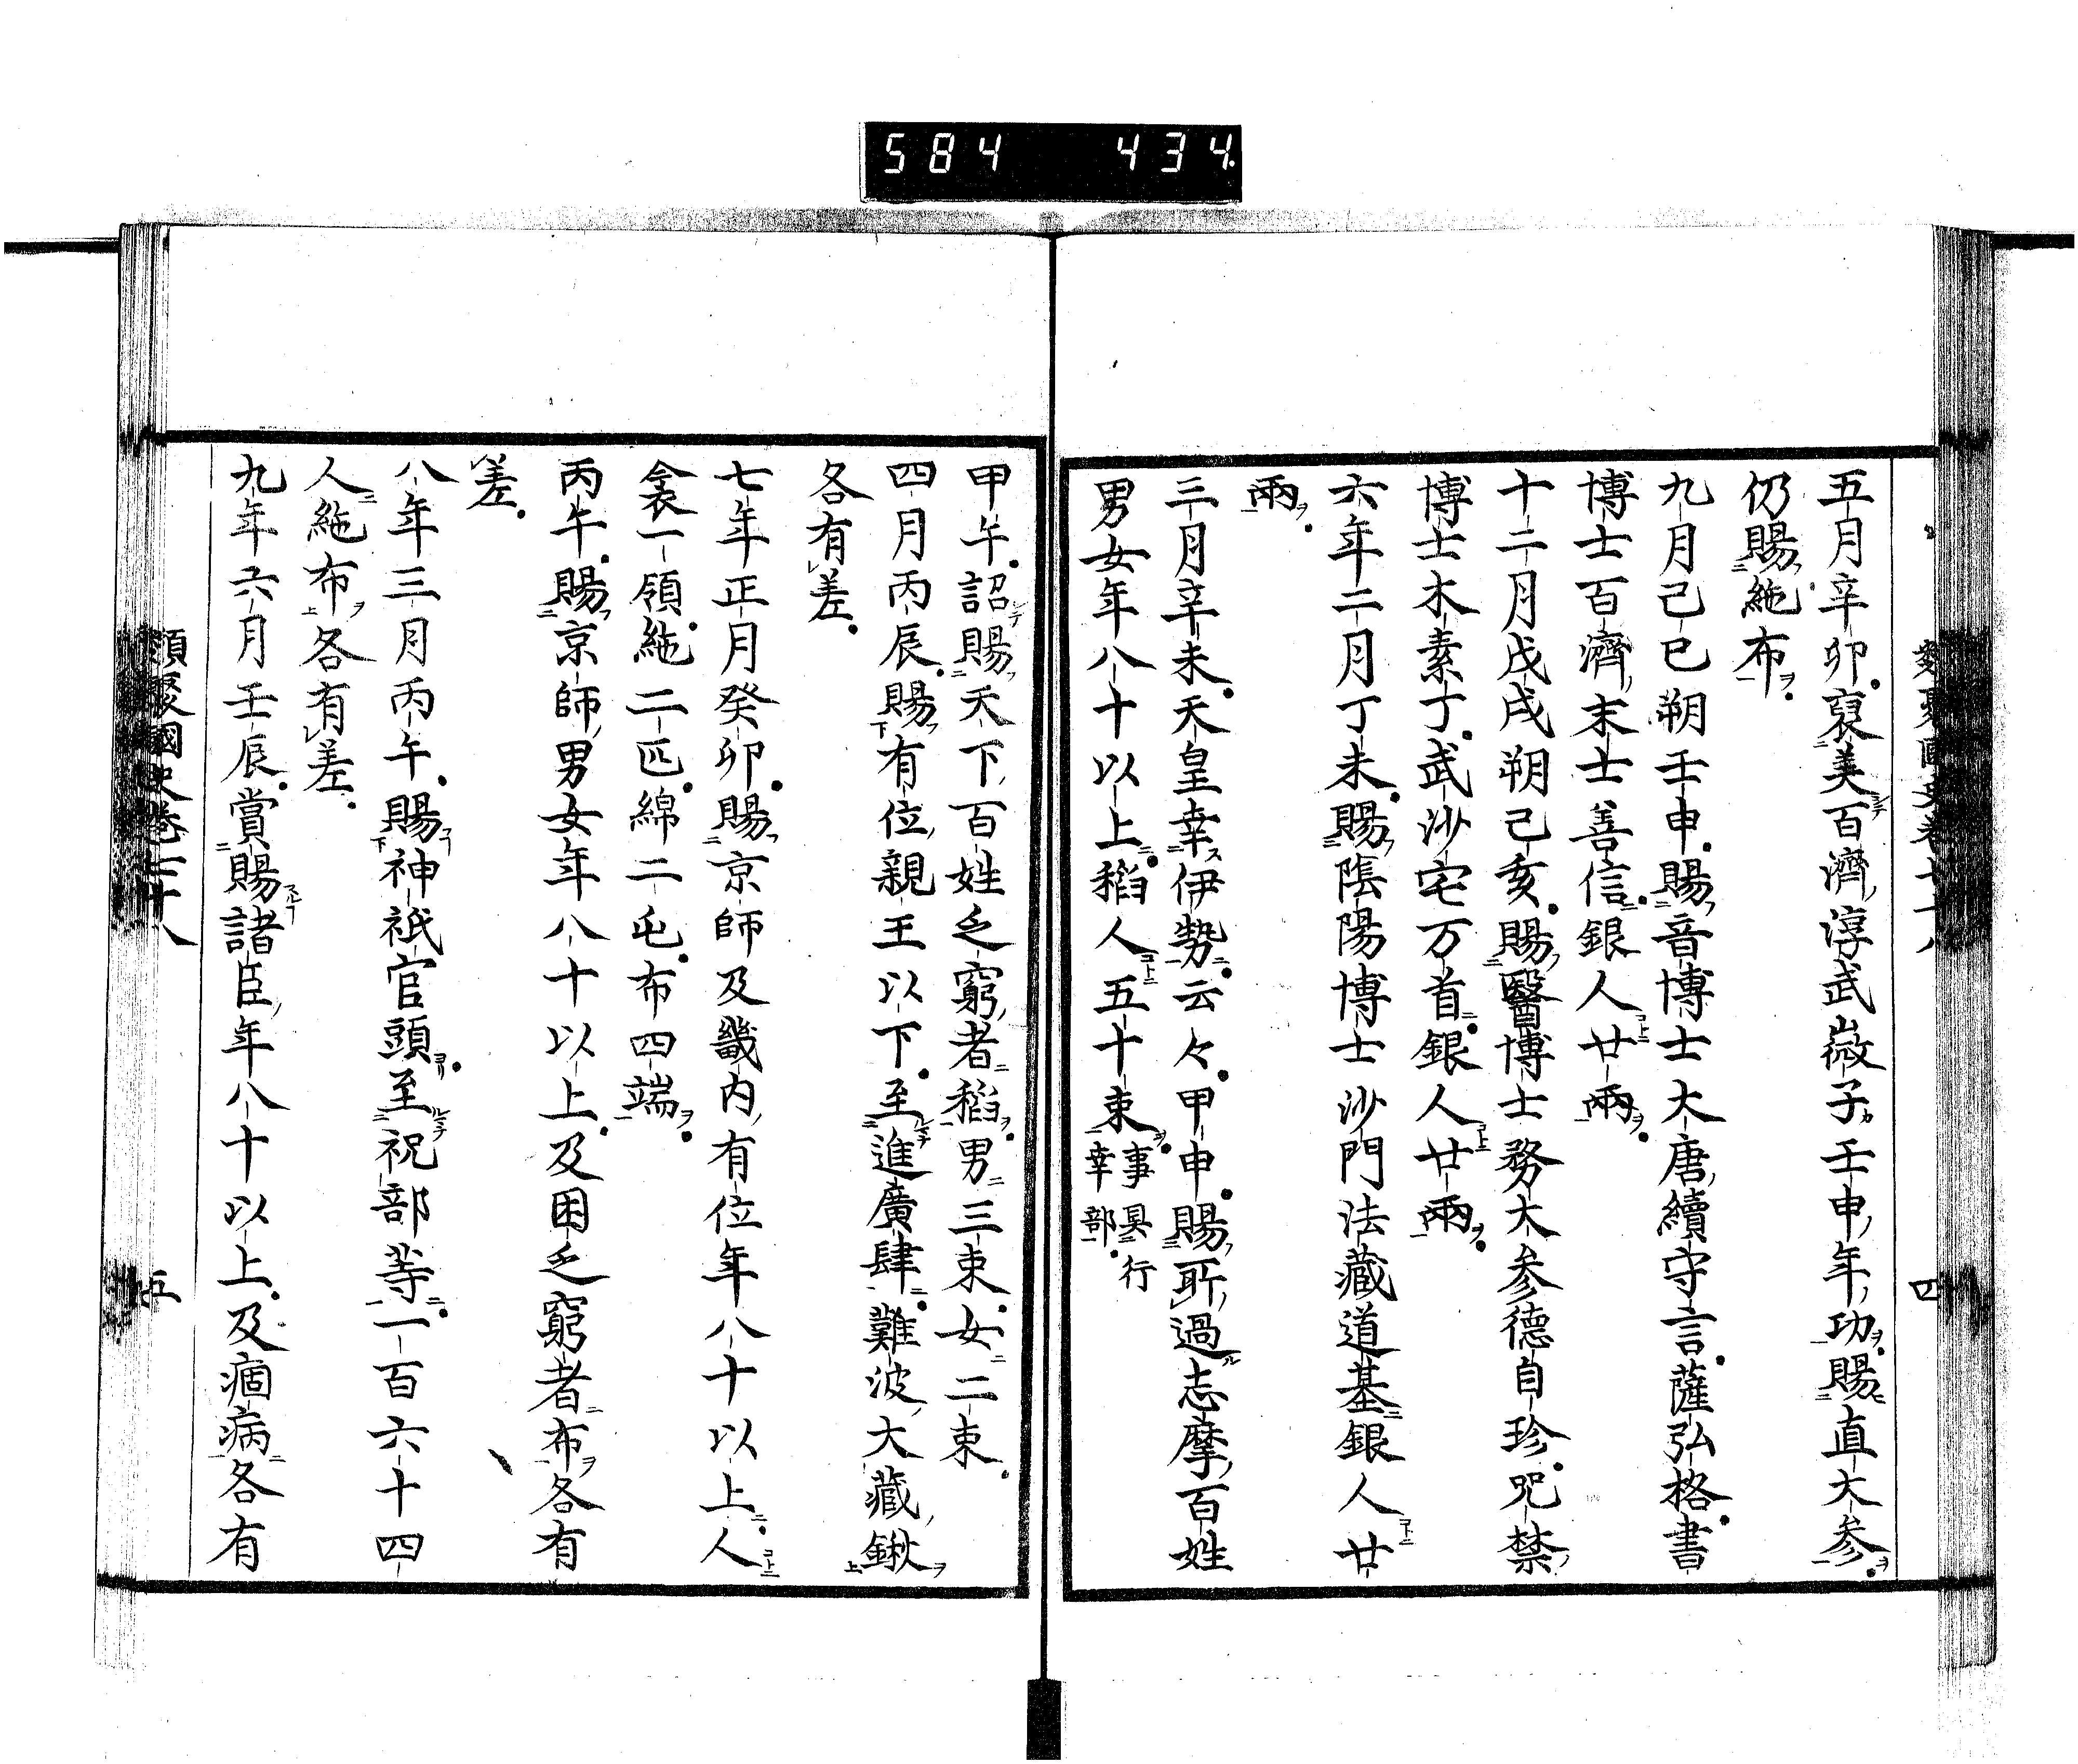 584 434
類聚國史卷七十八 四
五月辛卯褒美百濟淳武微子壬申年功賜直大参
仍賜絁布
九月己巳朔壬申賜音博士大唐續守言薩弘格書
博士百濟末士善信銀人廿兩
十二月戊戌朔己亥賜醫博士務大参德自珍咒禁
博士木素丁武沙宅万首銀人廿兩
六年二月丁未賜陰陽博士沙門法藏道基銀人廿
兩
三月辛未天皇幸伊勢云々甲申賜所過志摩百姓
男女年八十以上稻人五十束事具行幸部
甲午詔賜天下百姓乏窮者稻男三束女二束
四月丙辰賜有位親王以下至進廣肆難波大藏鍬
各有差
七年正月癸卯賜京師及畿内有位年八十以上人
衾一領絁二匹綿二屯布四端
丙午賜京師男女年八十以上及困乏窮者布各有
差
八年三月丙午賜神祇官頭至祝部等一百六十四
人絁布各有差
九年六月壬辰賞賜諸臣年八十以上及痼病各有
類聚國史卷七十八 五